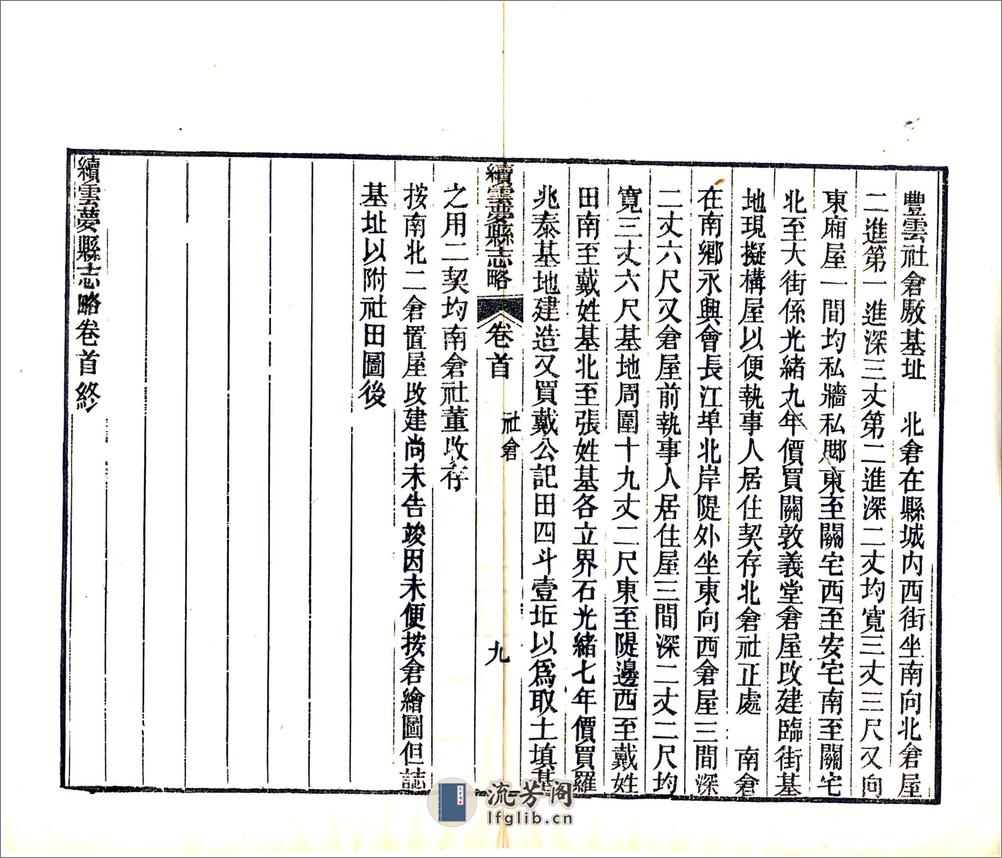 豐雲社倉厫基址　北倉在縣城內西街坐南向北倉屋
二進第一進深三丈第二進深二丈均寬三丈三尺又向
東廂屋一間均私牆私腳東至關宅西至安宅南至關宅
北至大街係光緒九年價買關敦義堂倉屋改建臨街基
地現擬構屋以便執事人居住契存北倉社正處　南倉
在南鄉永興會長江埠北岸隄外坐東向西倉屋三間深
二丈六尺又倉屋前執事人居住屋三間深二丈二尺均
寬三丈六尺基地周圍十九丈二尺東至隄邊西至戴姓
田南至戴姓基北至張姓基各立界石光緒七年價買羅
兆泰基地建造又買戴公記田四斗壹坵以為取土填基
續雲夢縣志略　卷首　社倉　九
之用二契均南倉社董收存
按南北二倉置屋改建尚未告竣因未便按倉繪圖但誌
基址以附社田圖後
續雲夢縣志略卷首終
流芳阁
lfglib.cn